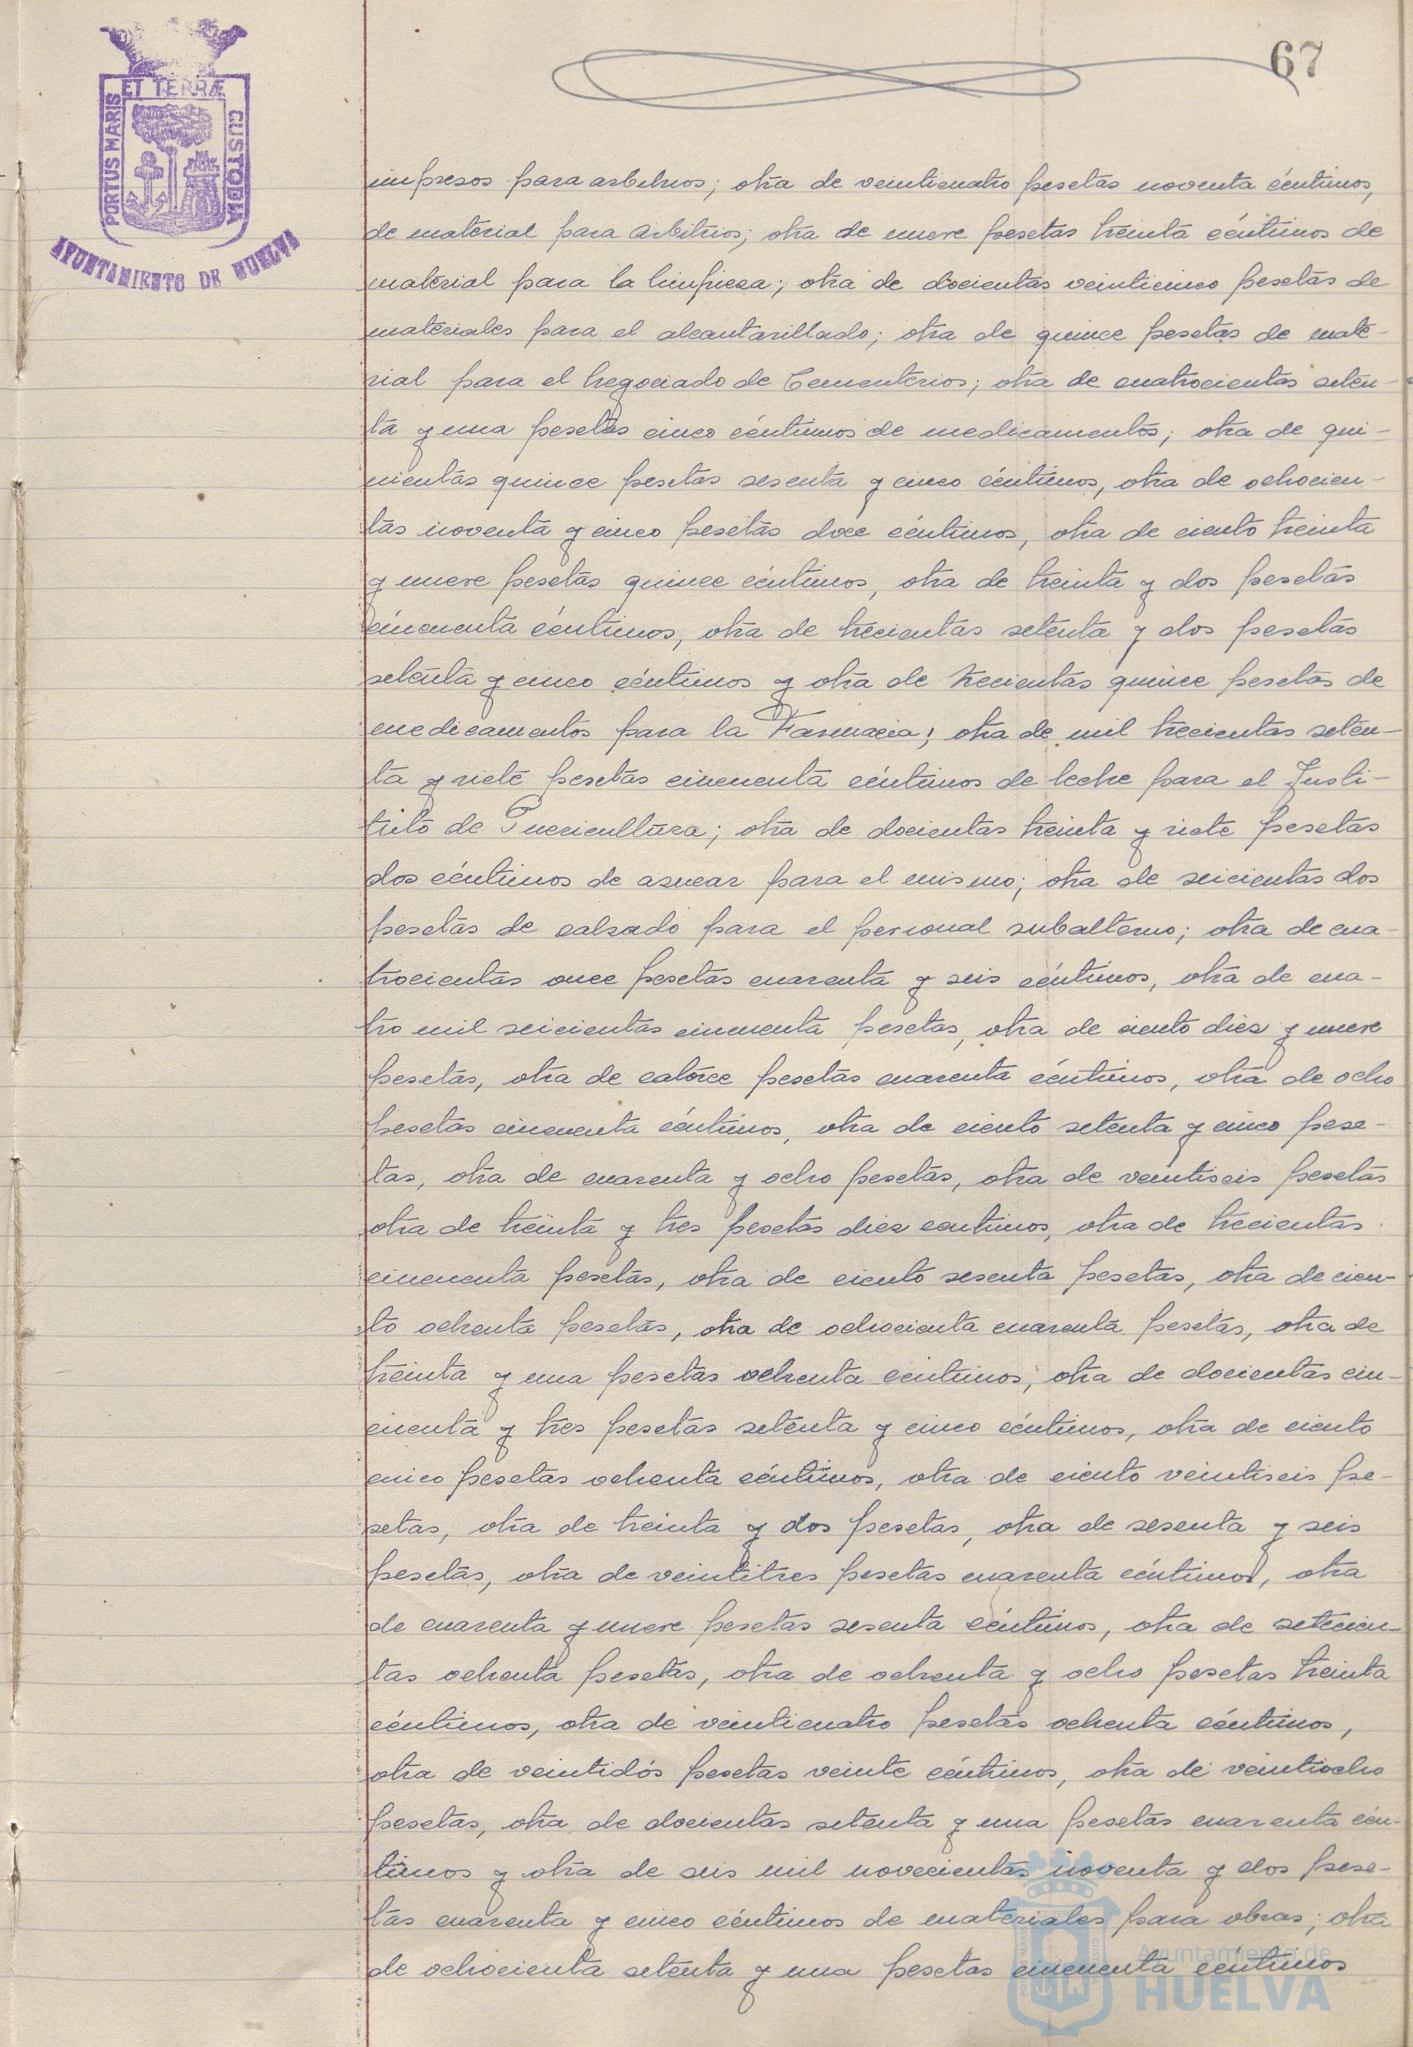 67
PORTUS MARIS ET TERRÆ CUSTODIA
AYUNTAMIENTO DE HUELVA
impresos para arbitrios; otra de veinticuatro pesetas noventa céntimos,
de material para arbitrios; otra de nueve pesetas treinta céntimos de
material para la limpieza; otra de docientas veinticinco pesetas de
materiales para el alcantarillado; otra de quince pesetas de mate-
rial para el Negociado de Cementerios; otra de cuatrocientas seten-
ta y una pesetas cinco céntimos de medicamentos; otra de qui-
nientas quince pesetas sesenta y cinco céntimos, otra de ochocien-
tas noventa y cinco pesetas doce céntimos, otra de ciento treinta
y nueve pesetas quince céntimos, otra de treinta y dos pesetas
cincuenta céntimos, otra de trecientas setenta y dos pesetas
setenta y cinco céntimos y otra de trecientas quince pesetas de
medicamentos para la Farmacia; otra de mil trecientas seten-
ta y siete pesetas cincuenta céntimos de leche para el Insti-
tuto de Puericultura; otra de docientas treinta y siete pesetas
dos céntimos de asucar para el mismo; otra de seicientas dos
pesetas de calzado para el personal subalterno; otra de cua-
trocientas once pesetas cuarenta y seis céntimos, otra de cua-
tro mil seicientas cincuenta pesetas, otra de ciento diez y nueve
pesetas, otra de catorce pesetas cuarenta céntimos, otra de ocho
pesetas cincuenta céntimos, otra de ciento setenta y cinco pese-
tas, otra de cuarenta y ocho pesetas, otra de veintiseis pesetas
otra de treinta y tres pesetas diez centimos, otra de trecientas
cincuenta pesetas, otra de ciento sesenta pesetas, otra de cien-
to ochenta pesetas, otra de ochocienta cuarenta pesetas, otra de
treinta y una pesetas ochenta centimos, otra de docientas cin-
cuenta y tres pesetas setenta y cinco céntimos, otra de ciento
cinco pesetas ochenta céntimos, otra de ciento veintiseis pe-
setas, otra de treinta y dos pesetas, otra de sesenta y seis
pesetas, otra de veintitres pesetas cuarenta céntimos, otra
de cuarenta y nueve pesetas sesenta céntimos, otra de setecien-
tas ochenta pesetas, otra de ochenta y ocho pesetas treinta
céntimos, otra de veinticuatro pesetas ochenta céntimos,
otra de veintidós pesetas veinte céntimos, otra de veintiocho
pesetas, otra de docientas setenta y una pesetas cuarenta cén-
timos y otra de seis mil novecientas noventa y dos pese-
tas cuarenta y cinco céntimos de materiales para obras; otra
de ochocienta setenta y una pesetas cincuenta céntimos
Ayuntamiento de
HUELVA